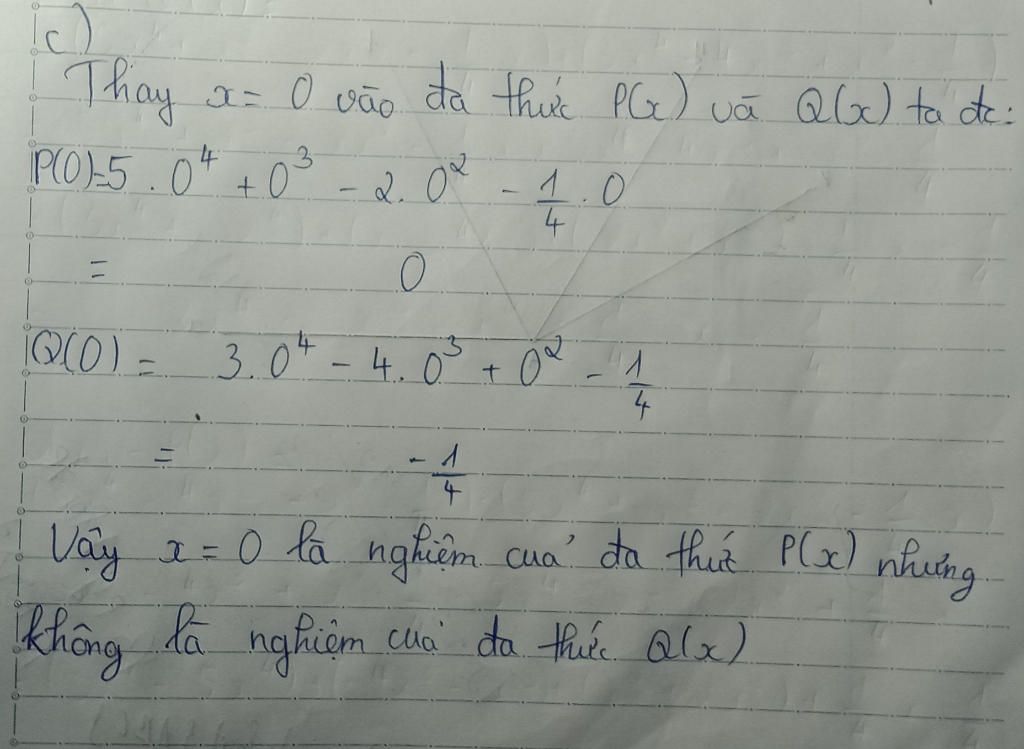 c)
Thay x = 0 vào đa thức P(x) và Q(x) ta đc:
P(0)=5 . 0⁴ + 0³ - 2. 0² - 1/4 . 0
= 0
Q(0) = 3. 0⁴ - 4. 0³ + 0² - 1/4
= - 1/4
Vậy x = 0 là nghiệm của đa thức P(x) nhưng
không là nghiệm của đa thức Q(x)